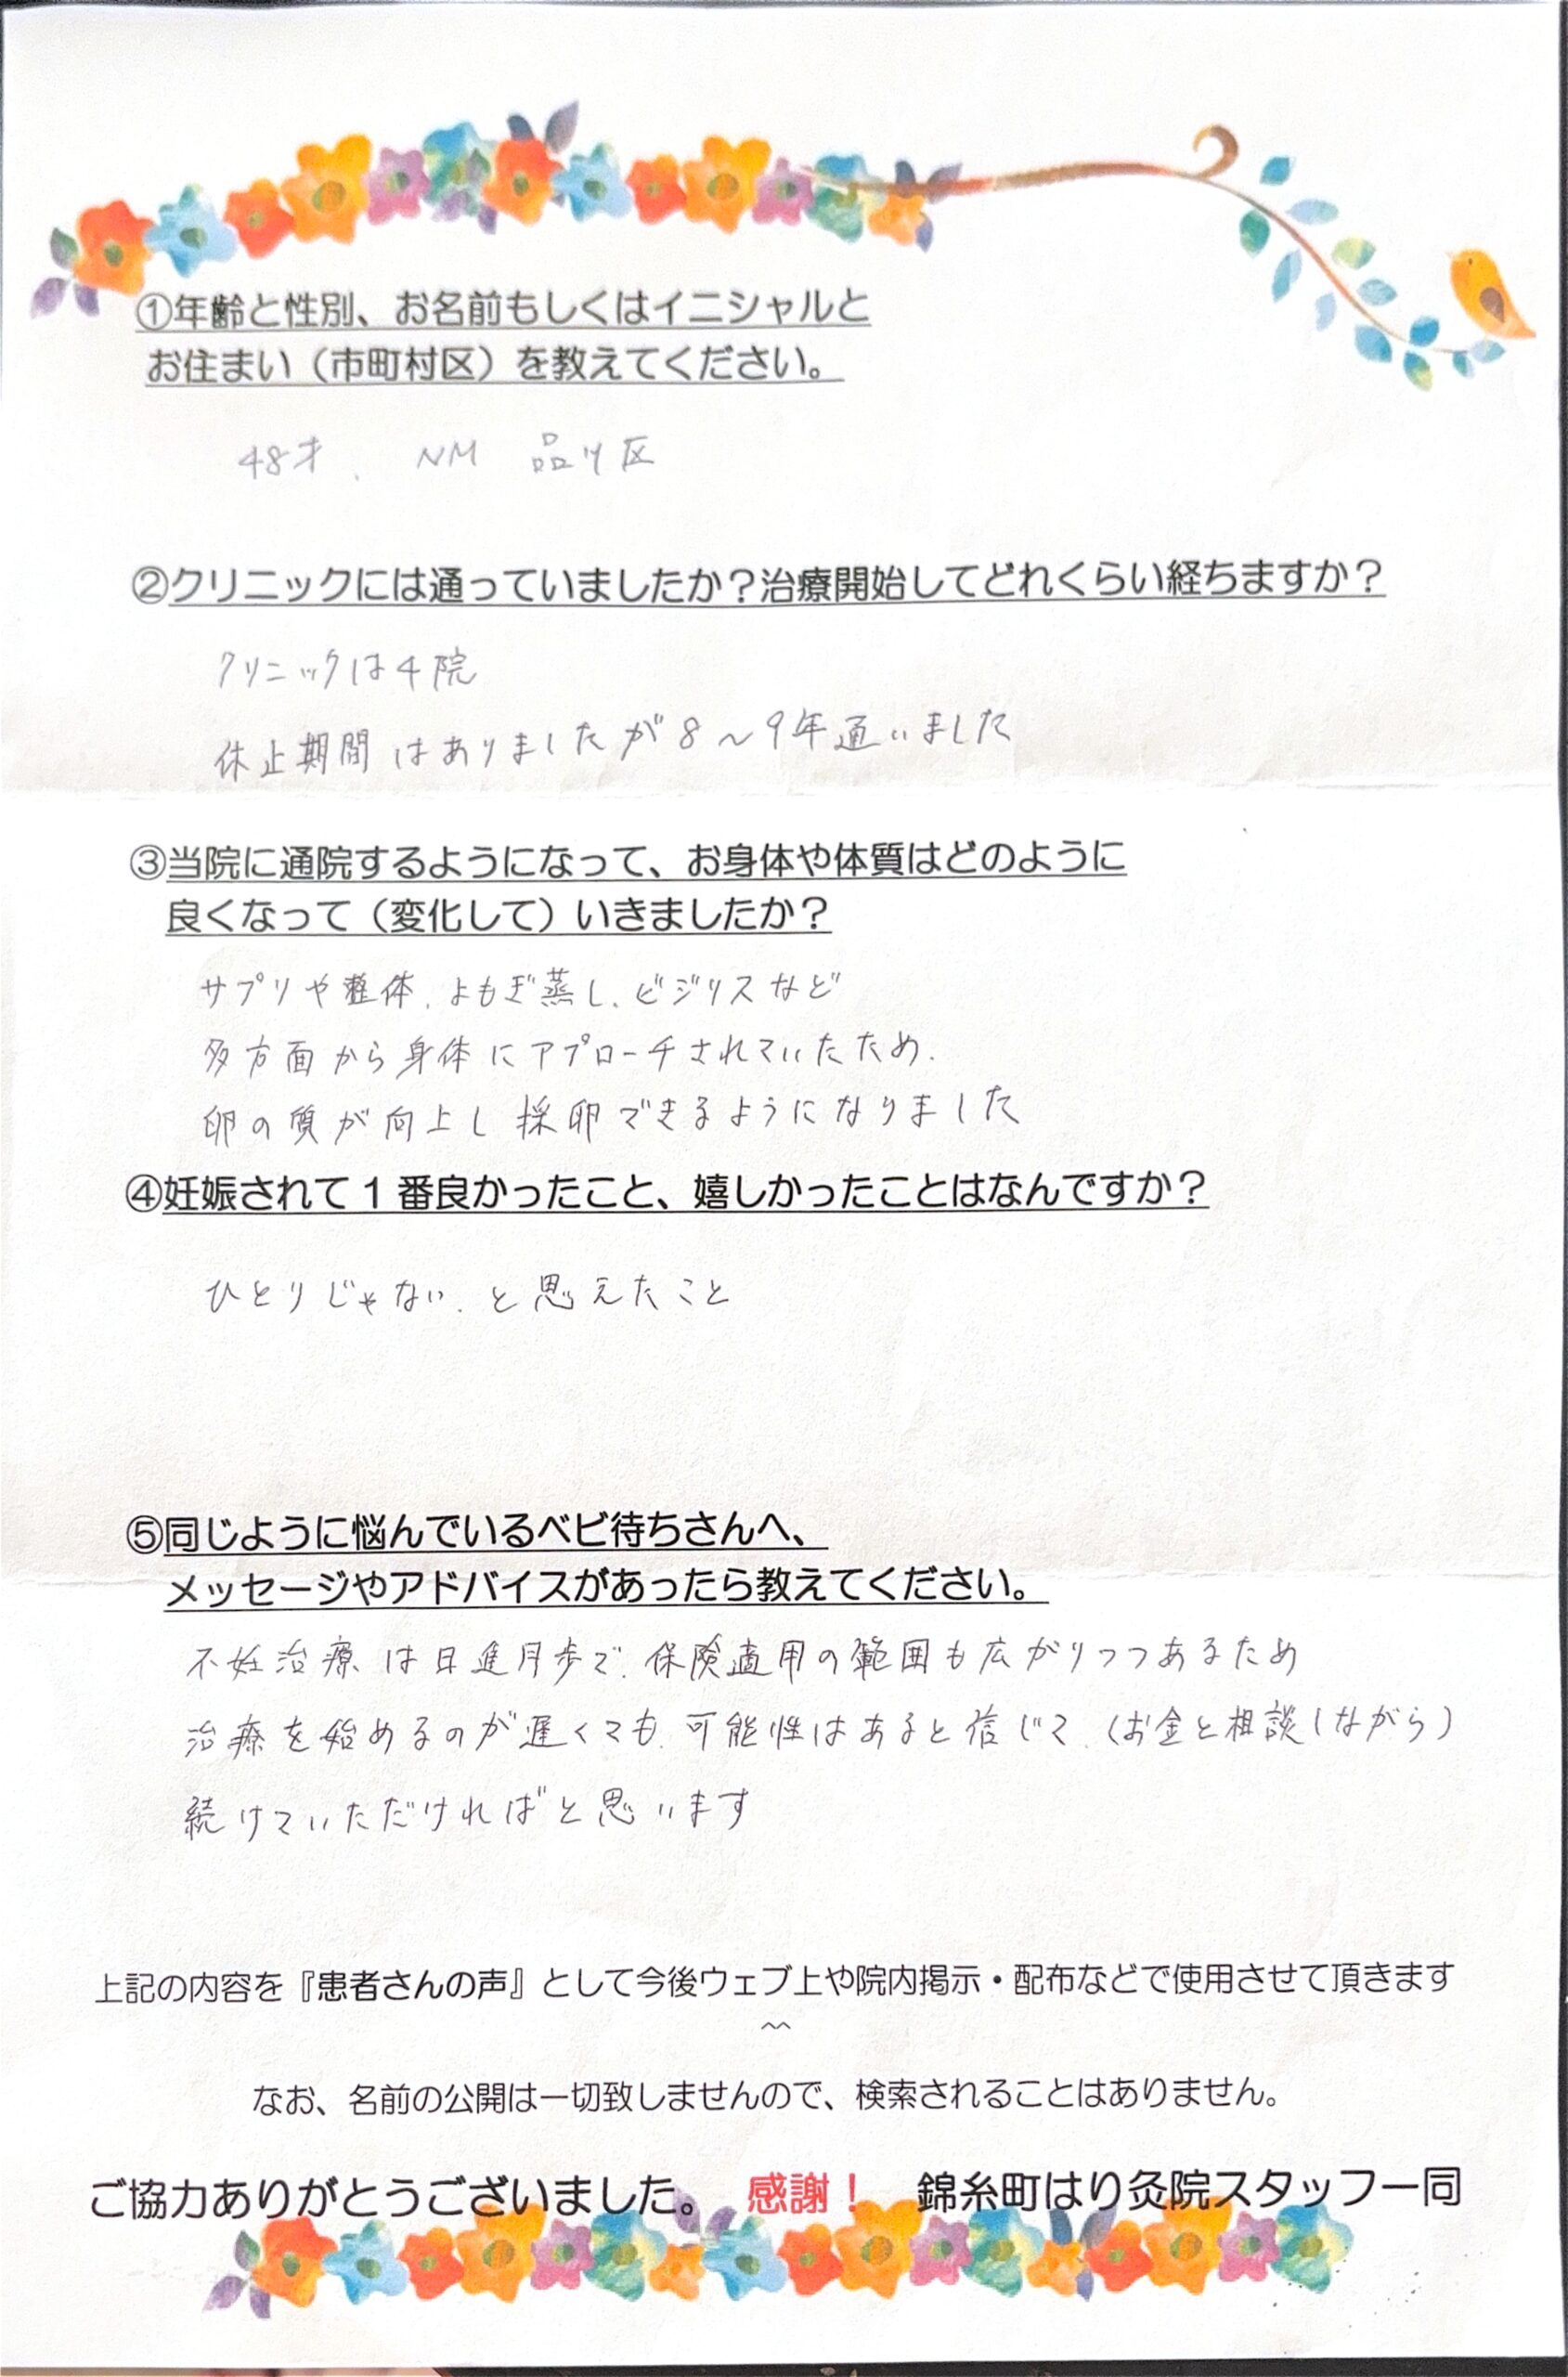 ①年齢と性別、お名前もしくはイニシャルと
お住まい（市町村区）を教えてください。
48才. NM 品川区
②クリニックには通っていましたか？治療開始してどれくらい経ちますか？
クリニックは4院
休止期間はありましたが8～9年通いました
③当院に通院するようになって、お身体や体質はどのように
良くなって（変化して）いきましたか？
サプリや整体、よもぎ蒸し、ビジリスなど
多方面から身体にアプローチされていたため、
卵の質が向上し採卵できるようになりました
④妊娠されて1番良かったこと、嬉しかったことはなんですか？
ひとりじゃない、と思えたこと
⑤同じように悩んでいるベビ待ちさんへ、
メッセージやアドバイスがあったら教えてください。
不妊治療は日進月歩で、保険適用の範囲も広がりつつあるため
治療を始めるのが遅くても、可能性はあると信じて、(お金と相談しながら)
続けていただければと思います
上記の内容を『患者さんの声』として今後ウェブ上や院内掲示・配布などで使用させて頂きます
^^
なお、名前の公開は一切致しませんので、検索されることはありません。
ご協力ありがとうございました。 感謝！ 錦糸町はり灸院スタッフ一同